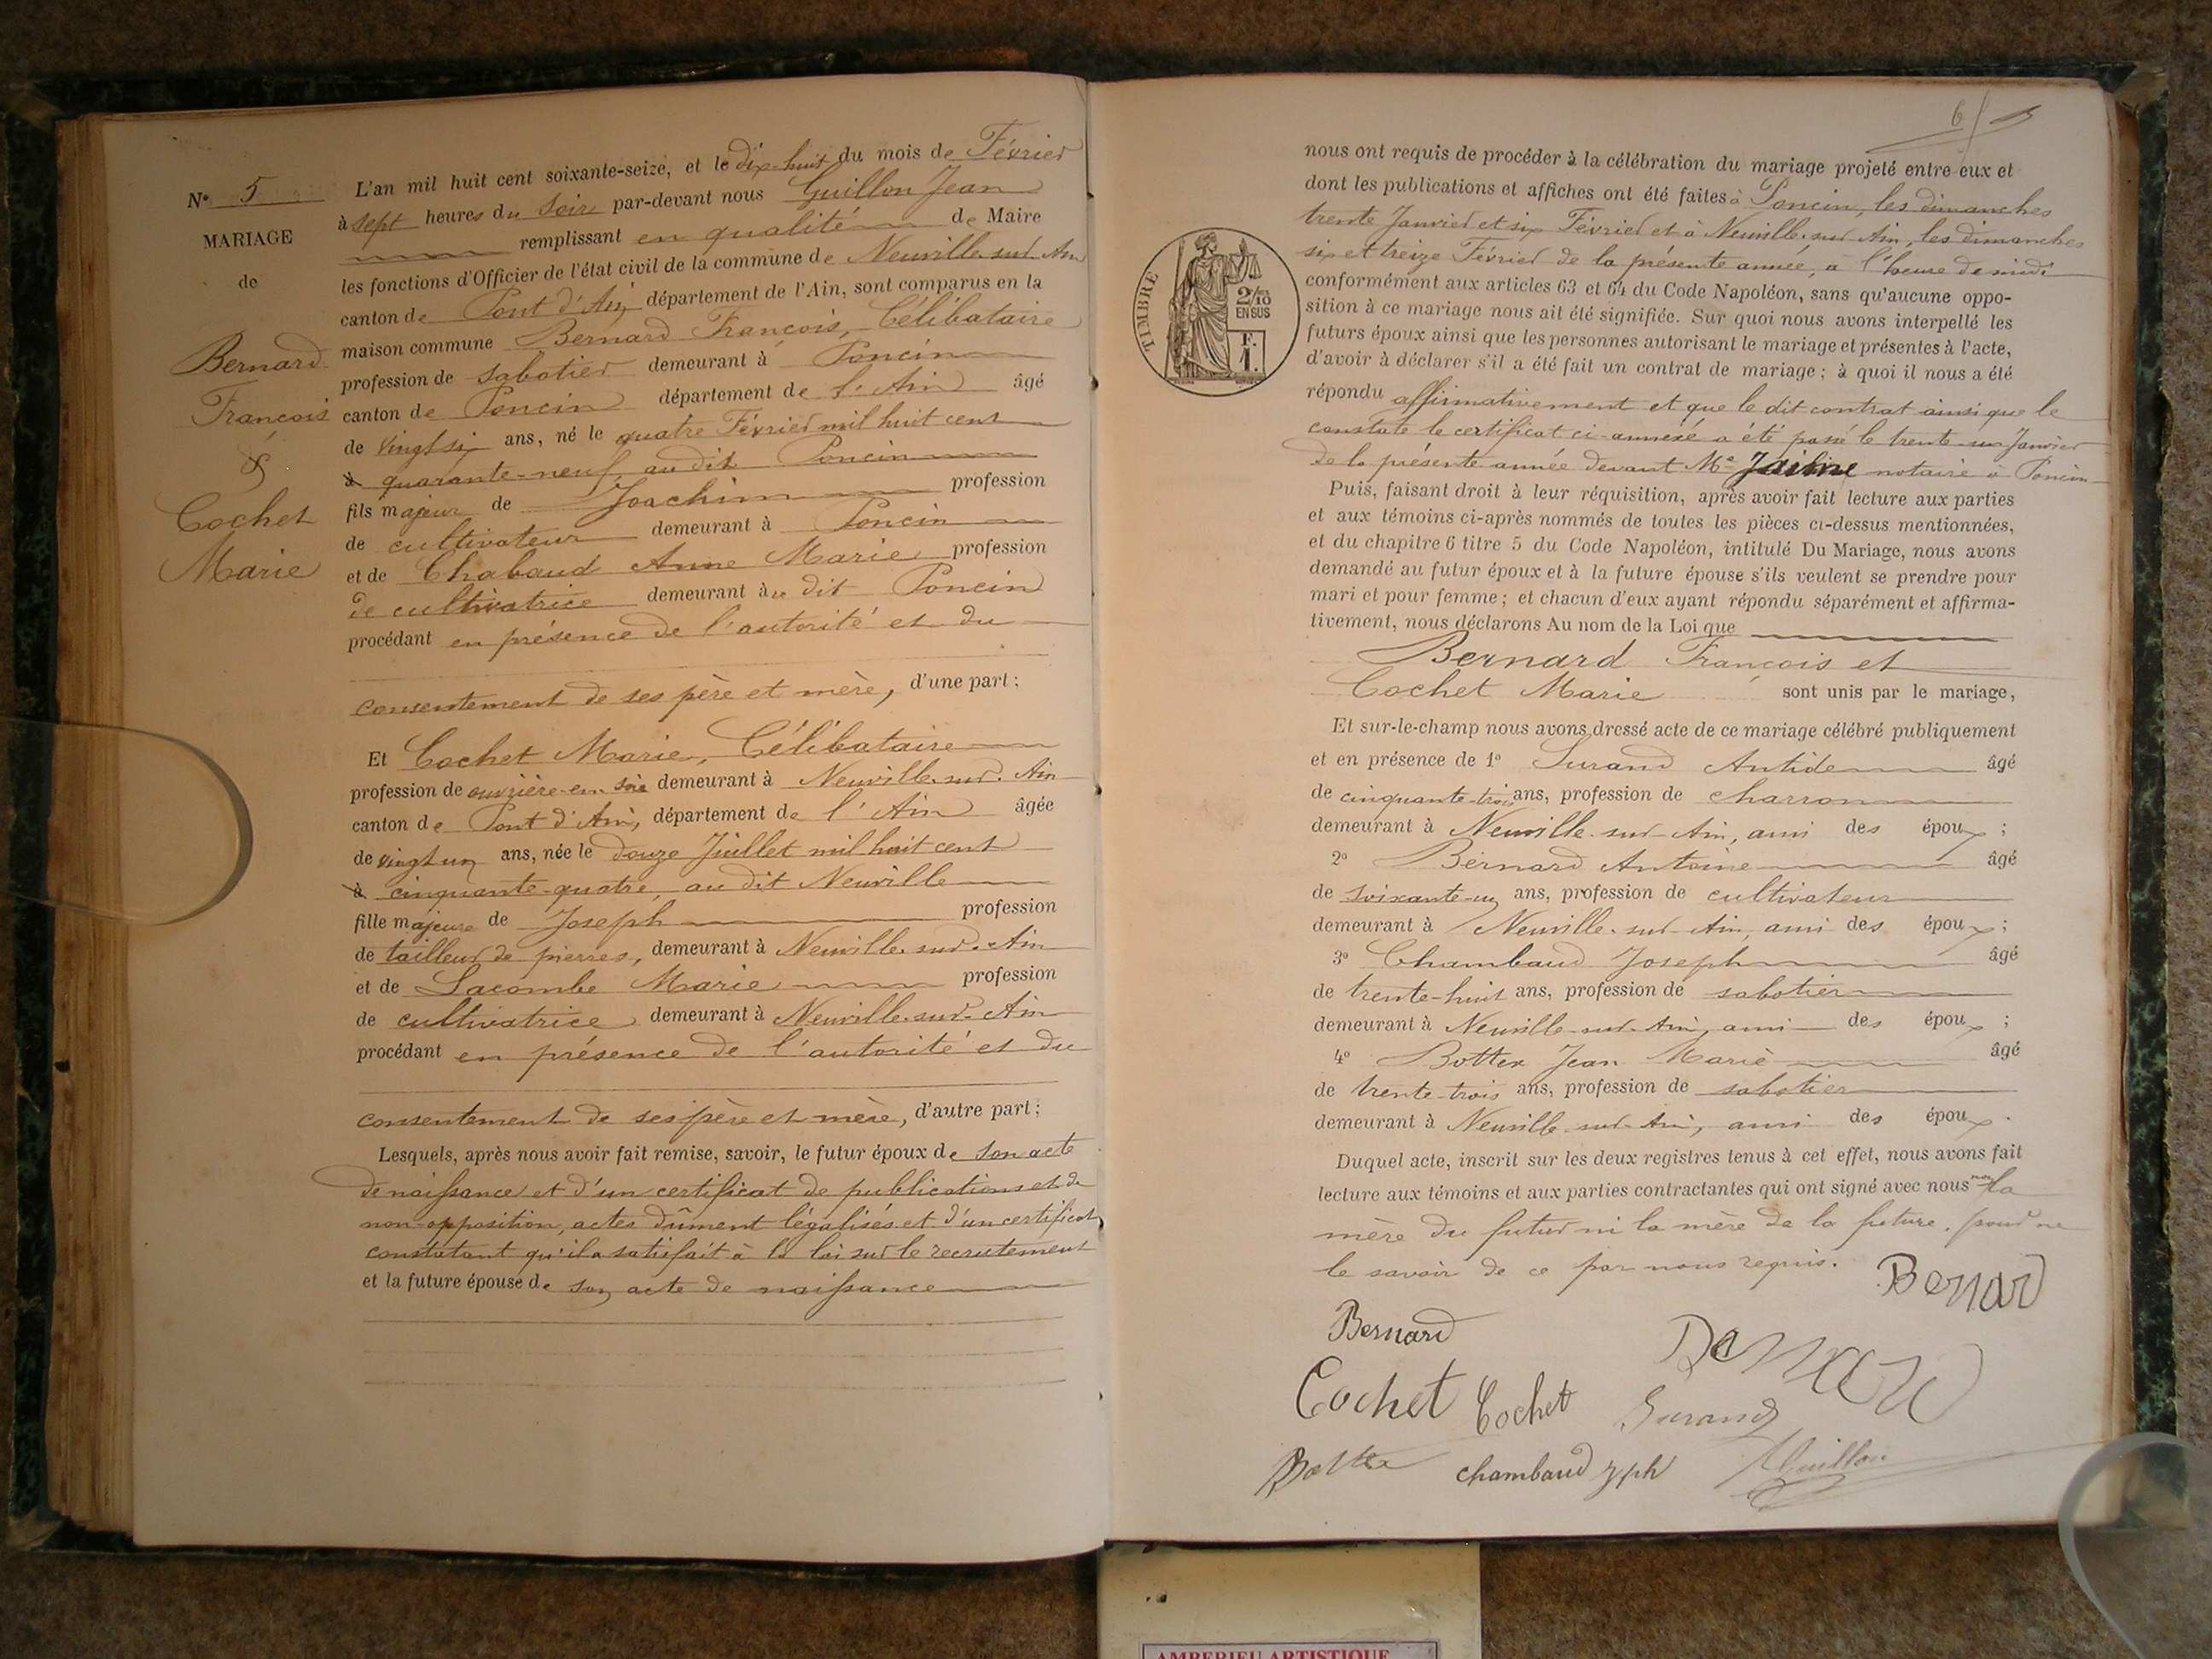 N° 5
MARIAGE
de
Bernard
François
&
Cochet
Marie
L'an mil huit cent soixante-seize, et le dix-huit du mois de Février
à sept heures du Soir par-devant nous Guillon Jean
remplissant en qualité de Maire
les fonctions d'Officier de l'état civil de la commune de Neuville-sur-Ain
canton de Pont d'Ain, département de l'Ain, sont comparus en la
maison commune Bernard François, Célibataire
profession de sabotier demeurant à Poncin
canton de Poncin département de l'Ain âgé
de vingt six ans, né le quatre Février mil huit cent
à quarante-neuf, au dit Poncin
fils majeur de Joachim profession
de cultivateur demeurant à Poncin
et de Chabaud Anne Marie profession
de cultivatrice demeurant au dit Poncin
procédant en présence de l'autorité et du
consentement de ses père et mère, d'une part;
Et Cochet Marie, Célibataire
profession de ouvrière en soie demeurant à Neuville-sur-Ain
canton de Pont d'Ain, département de l'Ain âgée
de vingt un ans, née le douze Juillet mil huit cent
à cinquante-quatre, au dit Neuville
fille majeure de Joseph profession
de tailleur de pierres, demeurant à Neuville-sur-Ain
et de Lacombe Marie profession
de cultivatrice demeurant à Neuville-sur-Ain
procédant en présence de l'autorité et du
consentement de ses père et mère, d'autre part;
Lesquels, après nous avoir fait remise, savoir, le futur époux de son acte
de naissance et d'un certificat de publications et de
non-opposition, actes dûment légalisés et d'un certificat
constatant qu'il a satisfait à la loi sur le recrutement
et la future épouse de son acte de naissance
6
nous ont requis de procéder à la célébration du mariage projeté entre eux et
dont les publications et affiches ont été faites à Poncin, les dimanches
trente Janvier et six Février et à Neuville-sur-Ain, les dimanches
six et treize Février de la présente année, à l'heure de midi
conformément aux articles 63 et 64 du Code Napoléon, sans qu'aucune oppo-
sition à ce mariage nous ait été signifiée. Sur quoi nous avons interpellé les
futurs époux ainsi que les personnes autorisant le mariage et présentes à l'acte,
d'avoir à déclarer s'il a été fait un contrat de mariage; à quoi il nous a été
répondu affirmativement et que le dit contrat ainsi que le
constate le certificat ci-annexé a été passé le trente-un Janvier
de la présente année devant Me notaire à Poncin
TIMBRE
2/10
EN SUS
F.
1.
Puis, faisant droit à leur réquisition, après avoir fait lecture aux parties
et aux témoins ci-après nommés de toutes les pièces ci-dessus mentionnées,
et du chapitre 6 titre 5 du Code Napoléon, intitulé Du Mariage, nous avons
demandé au futur époux et à la future épouse s'ils veulent se prendre pour
mari et pour femme; et chacun d'eux ayant répondu séparément et affirma-
tivement, nous déclarons Au nom de la Loi que
Bernard François et
Cochet Marie sont unis par le mariage,
Et sur-le-champ nous avons dressé acte de ce mariage célébré publiquement
et en présence de 1° Surand Antide âgé
de cinquante-trois ans, profession de charron
demeurant à Neuville-sur-Ain, ami des époux;
2° Bernard Antoine âgé
de soixante-un ans, profession de cultivateur
demeurant à Neuville-sur-Ain, ami des époux;
3° Chambaud Joseph âgé
de trente-huit ans, profession de sabotier
demeurant à Neuville-sur-Ain, ami des époux;
4° Bottex Jean Marie âgé
de trente-trois ans, profession de sabotier
demeurant à Neuville-sur-Ain, ami des époux.
Duquel acte, inscrit sur les deux registres tenus à cet effet, nous avons fait
lecture aux témoins et aux parties contractantes qui ont signé avec nous non la
mère du futur ni la mère de la future, pour ne
le savoir de ce par nous requis.
Bernard
Bernard
Cochet Cochet Surand
chambaud jph Guillon
AMBERIEU ARTISTIQUE